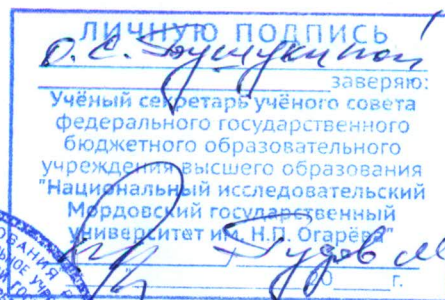 ЛИЧНУЮ ПОДПИСЬ
О. С. Бушукиной
заверяю:
Учёный секретарь учёного совета
федерального государственного
бюджетного образовательного
учреждения высшего образования
"Национальный исследовательский
Мордовский государственный
университет им. Н.П. Огарёва"
г.